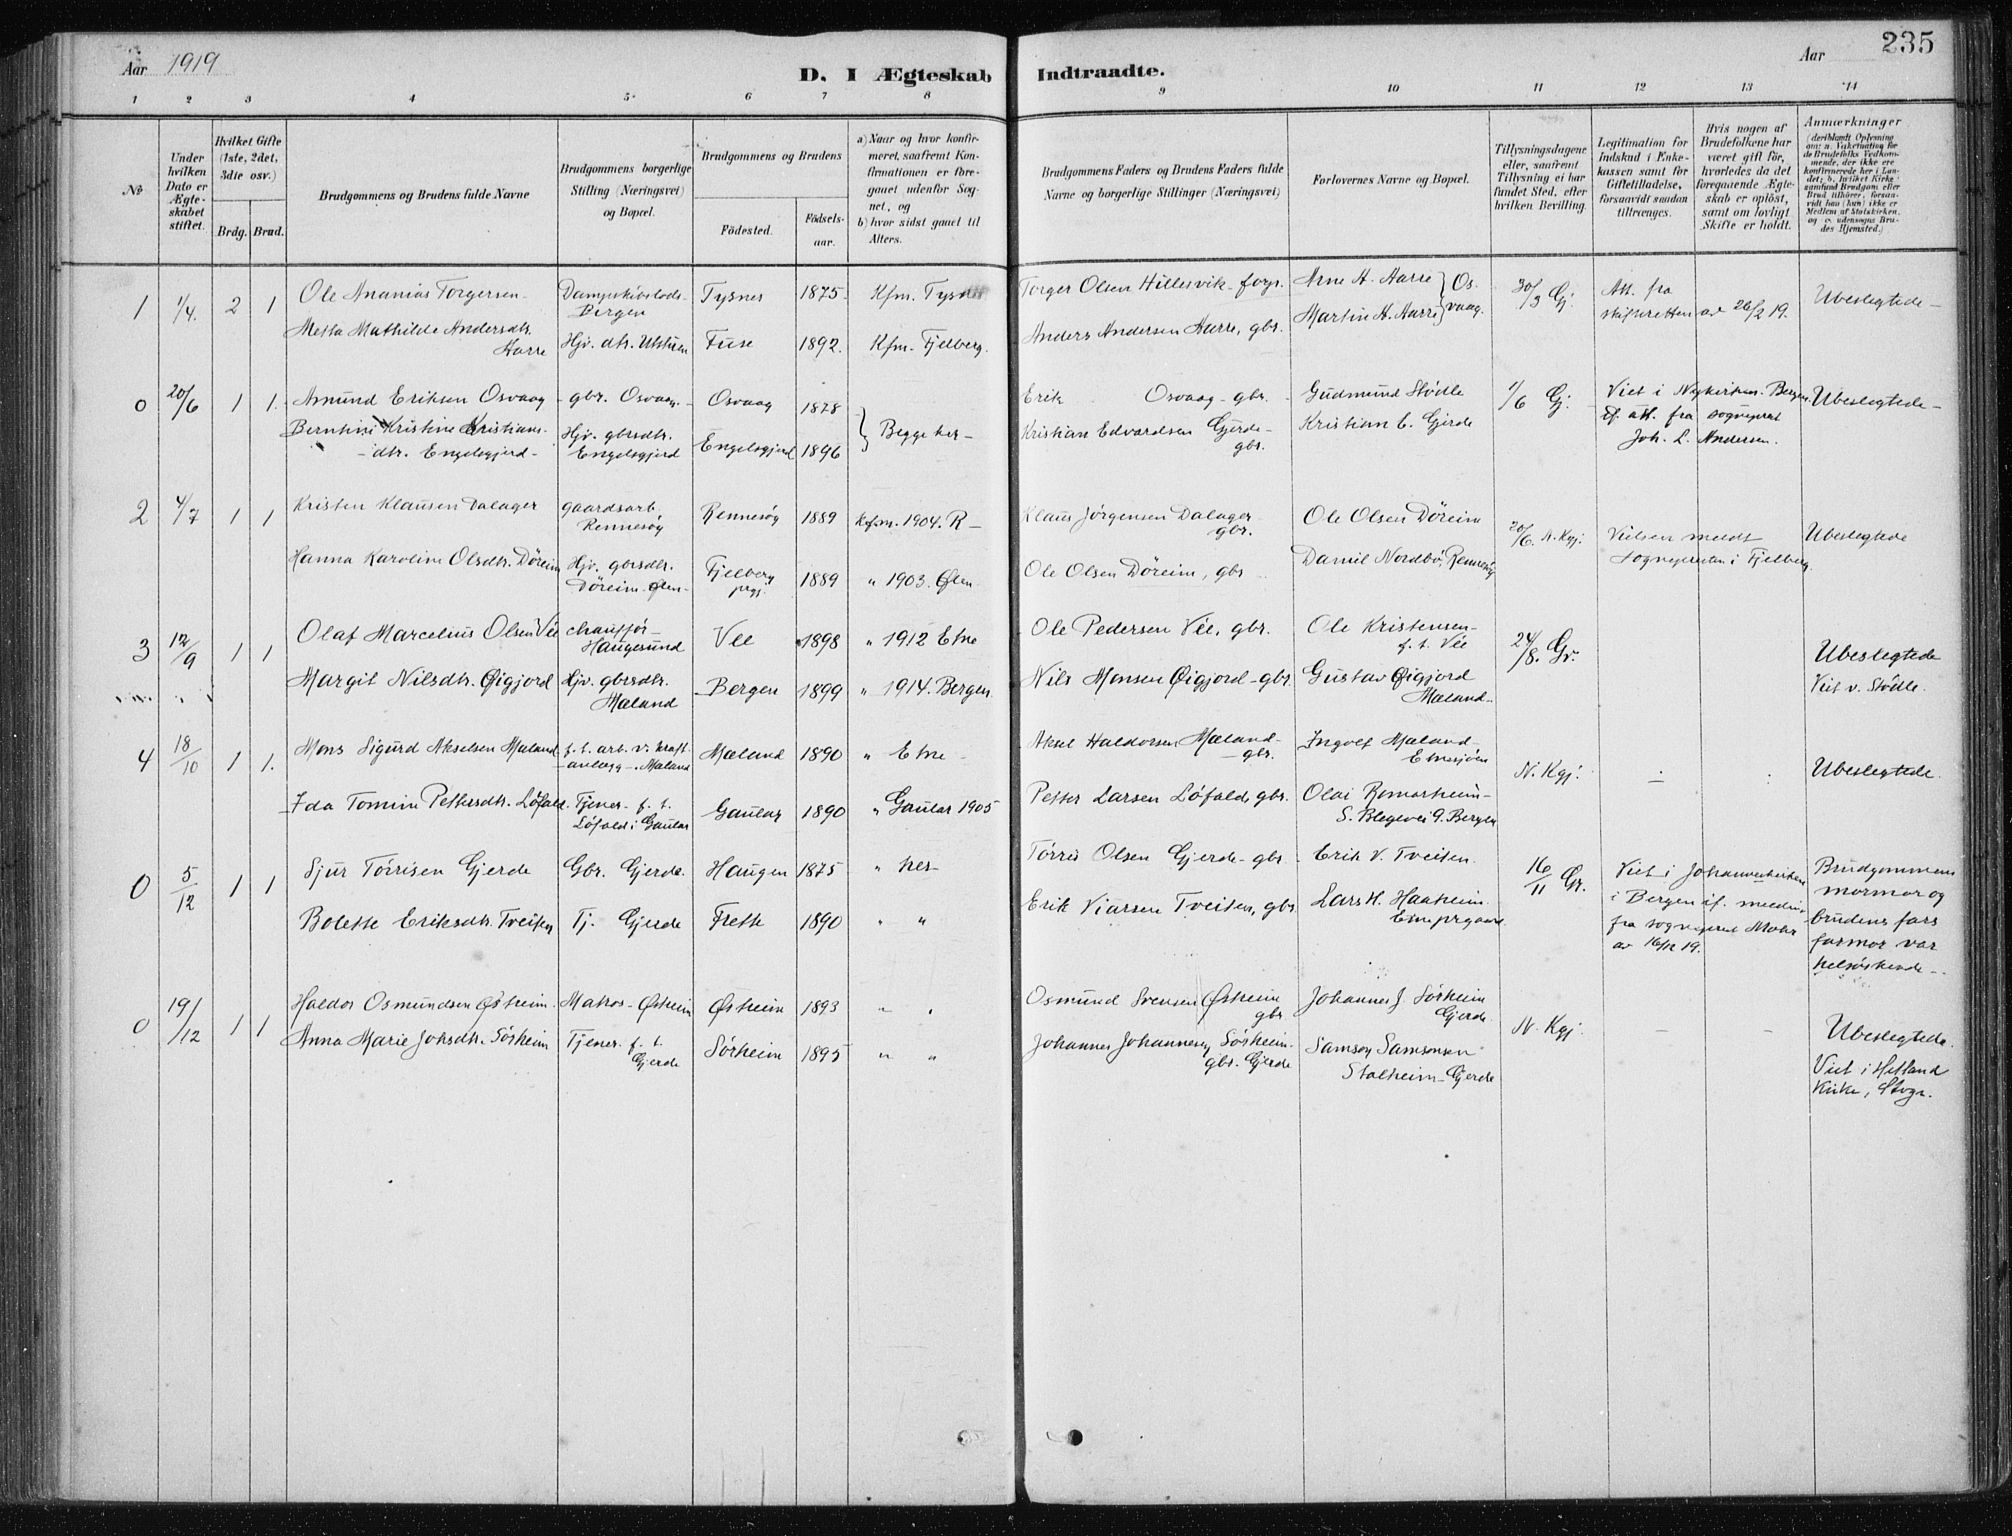 Aar 1919
D. I Ægteskab Indtraadte.
Aar 235
1 2 3 4 5 6 7 8 9 10 11 12 13 14
No
Under hvilken Dato er Ægteskabet stiftet.
Hvilket Gifte (1ste, 2det, 3die osv.)
Brdg. Brud.
Brudgommens og Brudens fulde Navne
Brudgommens borgerlige Stilling (Næringsvei) og Bopæl.
Brudgommens og Brudens
Fødested.
Fødselsaar.
a) Naar og hvor konfirmeret, saafremt Konfirmationen er foregaaet udenfor Sognet, og
b) hvor sidst gaaet til Alters.
Brudgommens Faders og Brudens Faders fulde Navne og borgerlige Stillinger (Næringsvei)
Forlovernes Navne og Bopæl.
Tillysningsdagene eller, saafremt Tillysning ei har fundet Sted, efter hvilken Bevilling.
Legitimation for Indskud i Enkekassen samt for Giftetilladelse, forsaavidt saadan tiltrænges.
Hvis nogen af Brudefolkene har været gift før, hvorledes da det foregaaende Ægteskab er opløst, samt om lovligt Skifte er holdt.
Anmærkninger
(deriblandt Oplysning om: a. Vakcination for de Brudefolks Vedkommende, der ikke ere konfirmerede her i Landet; b. hvilket Kirkesamfund Brudgom eller Brud tilhører, forsaavidt han (hun) ikke er Medlem af Statskirken, og c. udensogns Brudes Hjemsted.)
1 1/4. 2 1 Ole Ananias Torgersen Dampskibslods- Bergen Tysnes 1875 Kfm. Tysnes Torger Olsen Hillesvik - forp. Arne A. Aarre } Os- 30/3 Gj. Att. fra Ubeslegtede -
Metta Mathilde Andersdtr. Aarre Hjv. dtr. Utstuen Fuse 1892. Kfm. Fjelberg. Anders Andersen Aarre, gbr. Martin A. Aarre } vaag. skifteretten av 26/2 19.
0 20/6 1 1. Amund Eriksen Osvaag gbr. Osvaag Osvaag 1878 Erik Osvaag - gbr. Gudmund Stödle 1/6 Gj. Viet i Nykirken, Bergen Ubeslegtede -
Berntine Kristine Kristians- -dtr. Engelsgjerd - Hjv. gbrsdtr. Engelsgjerd Engelsgjerd 1896 } Begge her - Kristian Edvardsen Gjerde - gbr. Kristian E. Gjerde if. att. fra sogneprest Joh. L. Andersen.
2 4/7 1 1 Kristen Klausen Dalager gaardsarb. Rennesöy Rennesöy 1889 Kfm. 1904. R - Klaus Jörgensen Dalager gbr. Ole Olsen Döreim 20/6. N. Kgj. Vielsen meldt Ubeslegtede
Hanna Karoline Olsdtr. Döreim Hjv. gbrsdtr. Döreim - Ølen - Fjelberg prgj. 1889 " 1903. Ølen Ole Olsen Döreim, gbr Daniel Nordbö, Rennesöy sognepresten i Fjelberg.
3 12/9 1 1 Olaf Marcelius Olsen Vée chauffør - Haugesund Vée 1898 " 1912 Etne Ole Pedersen Vée, gbr. Ole Kristensen - f. t. Vée 24/8. Gr. Ubeslegtede
" " Margit Nilsdtr. Øigjord Hjv. gbrsdtr. Mæland Bergen 1899 " 1914. Bergen Nils Monsen Øigjord - gbr. Gustav Øigjord Mæland - Viet v. Stödle.
4 18/10 1 1. Mons Sigurd Akselsen Mæland f. t. arb. v. kraft- anlægg - Mæland Mæland 1890 " Etne - Aksel Haldorsen Mæland - gbr. Ingolf Mæland - Etnesjöen N. Kgj. - Ubeslegtede.
Ida Tomine Pettersdtr. Löfald. Tjener - f. t. Löfald i Gaular Gaular 1890 " Gaular 1905 Petter Larsen Löfald, gbr. Olai Romarheim - S. Blegevei 9. Bergen
0 5/12 1 1 Sjur Törrisen Gjerde Gbr. Gjerde. Haugen 1875 " her - Törris Olsen Gjerde - gbr. Erik V. Tveiten. 16/11 Gr. Viet i Johanneskirken Brudgommens
i Bergen if. melding mormor og
Bolette Eriksdtr. Tveiten Tj. Gjerde Frette 1890 " " Erik Viarsen Tveiten, gbr. Lars H. Haaheim. fra sogneprest Mohr brudens fars
av 16/12 19. farmor var
helsöskende -
0 19/12 1 1 Haldor Osmundsen Østheim. Matros - Østheim Østheim 1893 " " Osmund Svensen Østheim gbr Johannes J. Sörheim Gjerde. N. Kgj. - - Ubeslegtede.
Anna Marie Johsdtr. Sörheim Tjener f. t. Gjerde Sörheim 1895 " " Johannes Johannesen Sörheim - gbr. Gjerde Samson Samsonsen Stalheim - Gjerde Viet i Hetland
Kirke, Stvgr.